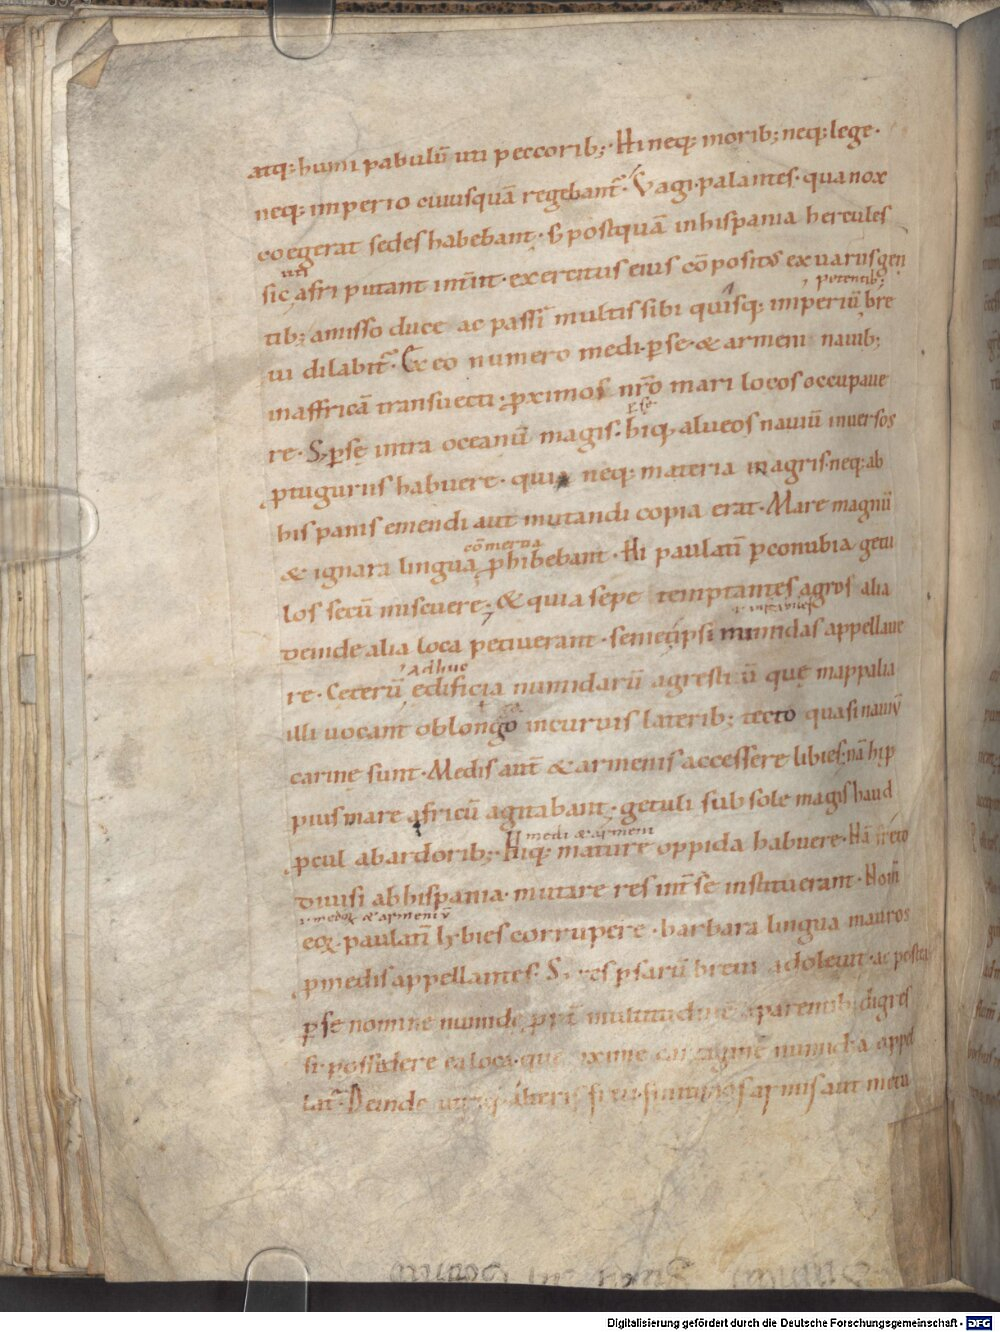 atq; humi pabulū uti peccorib;· Hi neq; morib; neq; lege·
neq; imperio cuiusquā regebant᷑· Vagi·palantes·qua nox
coegerat sedes habebant· S; postquā in hispania hercules
uti
sic afri putant interiit· exercitus eius cōpositos ex uariis gen
potentib;
tib; amisso duce ac passī multis sibi quisq; imperiū bre
ui dilabit᷑· Ex eo numero medi·ꝑse·& armeni nauib;
in affricā transuecti·ꝓximos nr̄o mari locos occupaue
re· S; ꝑsę intra oceanū magis· hiq; alueos nauiū inuersos
ꝑse
ꝓ tuguriis habuere· quia neq; materia in agris·neq; ab
hispanis emendi aut mutandi copia erat· Mare magnū
cōmertia
& ignara lingua ꝓhibebant· Hi paulatī ꝑ conubia getu
los secū miscuere· & quia sępe temptantes agros alia
deinde alia loca petiuerant· semetipsi numidas appellaue
Adhuc
re· Cęterū ędificia numidarū agrestiū quę mappalia
illi uocant oblongo incuruis laterib; tecto quasi nauiū
carinę sunt· Medis aut̄ & armenis accessere libies·nā hi ꝓ
pius mare africū agitabant· getuli sub sole magis haud
medi & armeni
ꝓcul ab ardorib;· Hiq; mature oppida habuere· Nā freto
diuisi ab hispania· mutare res int̄ se instituerant· Nom̄
·i· medoꝝ & armeniū
eoꝝ paulatī lybies corrupere· barbara lingua mauros
ꝓ medis appellantes· S; res ꝑsarū breui adoleuit· ac postea
ꝑse nomine numidę ꝓpt̄ multitudinē a parentib; digres
si·possidere ea loca·quę ꝓxime cartagine numidia appel
lat᷑· Deinde utriq; alteris freti·finitimos armis aut metu
Digitalisierung gefördert durch die Deutsche Forschungsgemeinschaft - DFG